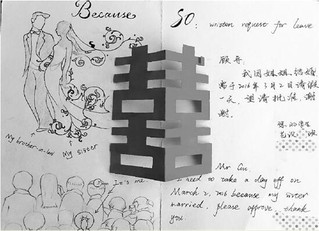 Because
My brother-in-law
My sister
It's me
SO: written request for leave
顾哥:
我因妹妹结婚
需于2016年3月2日请假
一天,望请批准,谢
谢。
Mr Gu
I need to take a day off on
March 2, 2016 because my sister
married, please approve, thank
you
囍